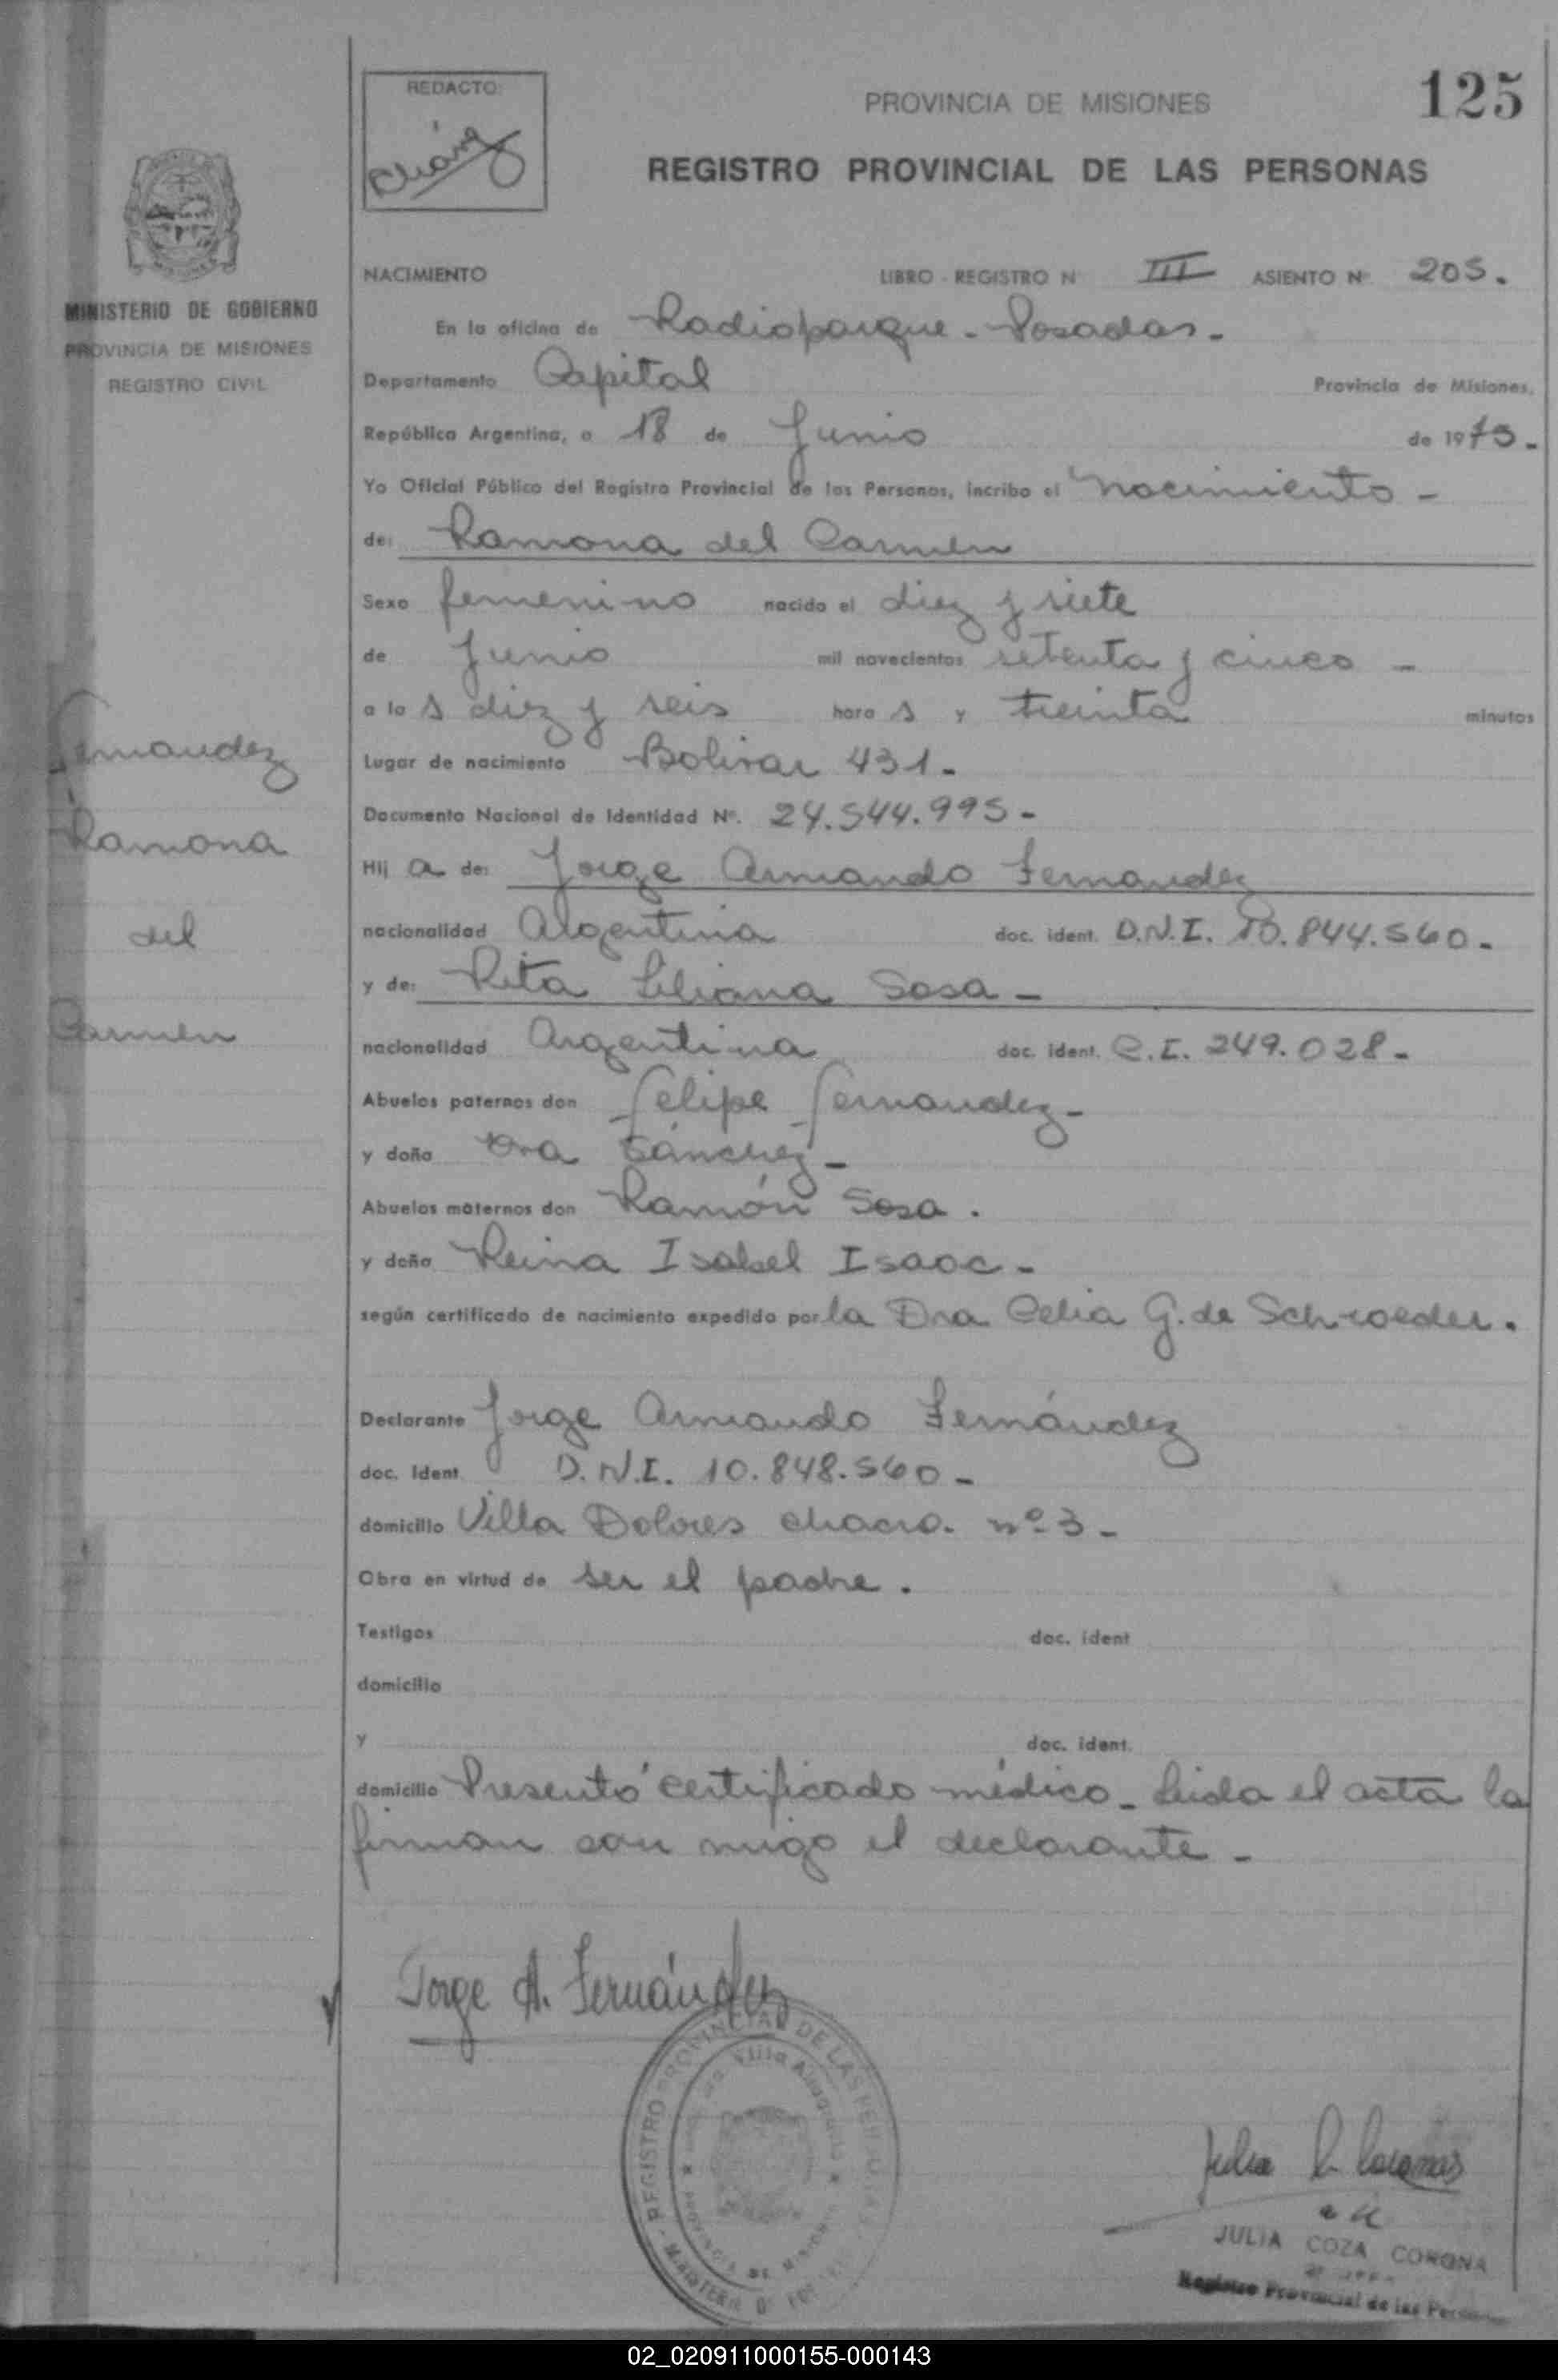 REDACTO:
PROVINCIA DE MISIONES
125
REGISTRO PROVINCIAL DE LAS PERSONAS
MINISTERIO DE GOBIERNO
PROVINCIA DE MISIONES
REGISTRO CIVIL
NACIMIENTO LIBRO - REGISTRO N III ASIENTO Nº 205.
En la oficina de Radioparque - Posadas -
Departamento Capital Provincia de Misiones,
República Argentina, a 18 de Junio de 1975 -
Yo Oficial Público del Registro Provincial de las Personas, incribo el Nacimiento -
de: Ramona del Carmen
Sexo femenino nacido el diez y siete
de Junio mil novecientos setenta y cinco -
a las diez y seis horas y treinta minutos
Lugar de nacimiento Bolivar 431 -
Documento Nacional de Identidad Nº. 24.544.995 -
Hija de: Jorge Armando Fernandez
nacionalidad Argentina doc. ident. D.N.I. 10.844.560 -
y de: Rita Liliana Sosa -
nacionalidad Argentina doc. ident. C.I. 249.028 -
Abuelos paternos don Felipe Fernandez -
y doña Sánchez -
Abuelos maternos don Ramón Sosa .
y doña Reina Isabel Isaac -
según certificado de nacimiento expedido por la Dra Celia G. de Schroeder .
Declarante Jorge Armando Fernández
doc. Ident D.N.I. 10.848.560 -
domicilio Villa Dolores chacra. nº 3 -
Obra en virtud de ser el padre .
Testigos doc. ident
domicilio
y doc. ident.
domicilio Presentó certificado médico - Leida el acta la
firman con migo el declarante -
Fernandez
Ramona
del
Carmen
Jorge A. Fernández
REGISTRO PROVINCIAL DE LAS PERSONAS
PROVINCIA DE MISIONES
JULIA COZA CORONA
Registro Provincial de las Personas
02_020911000155-000143